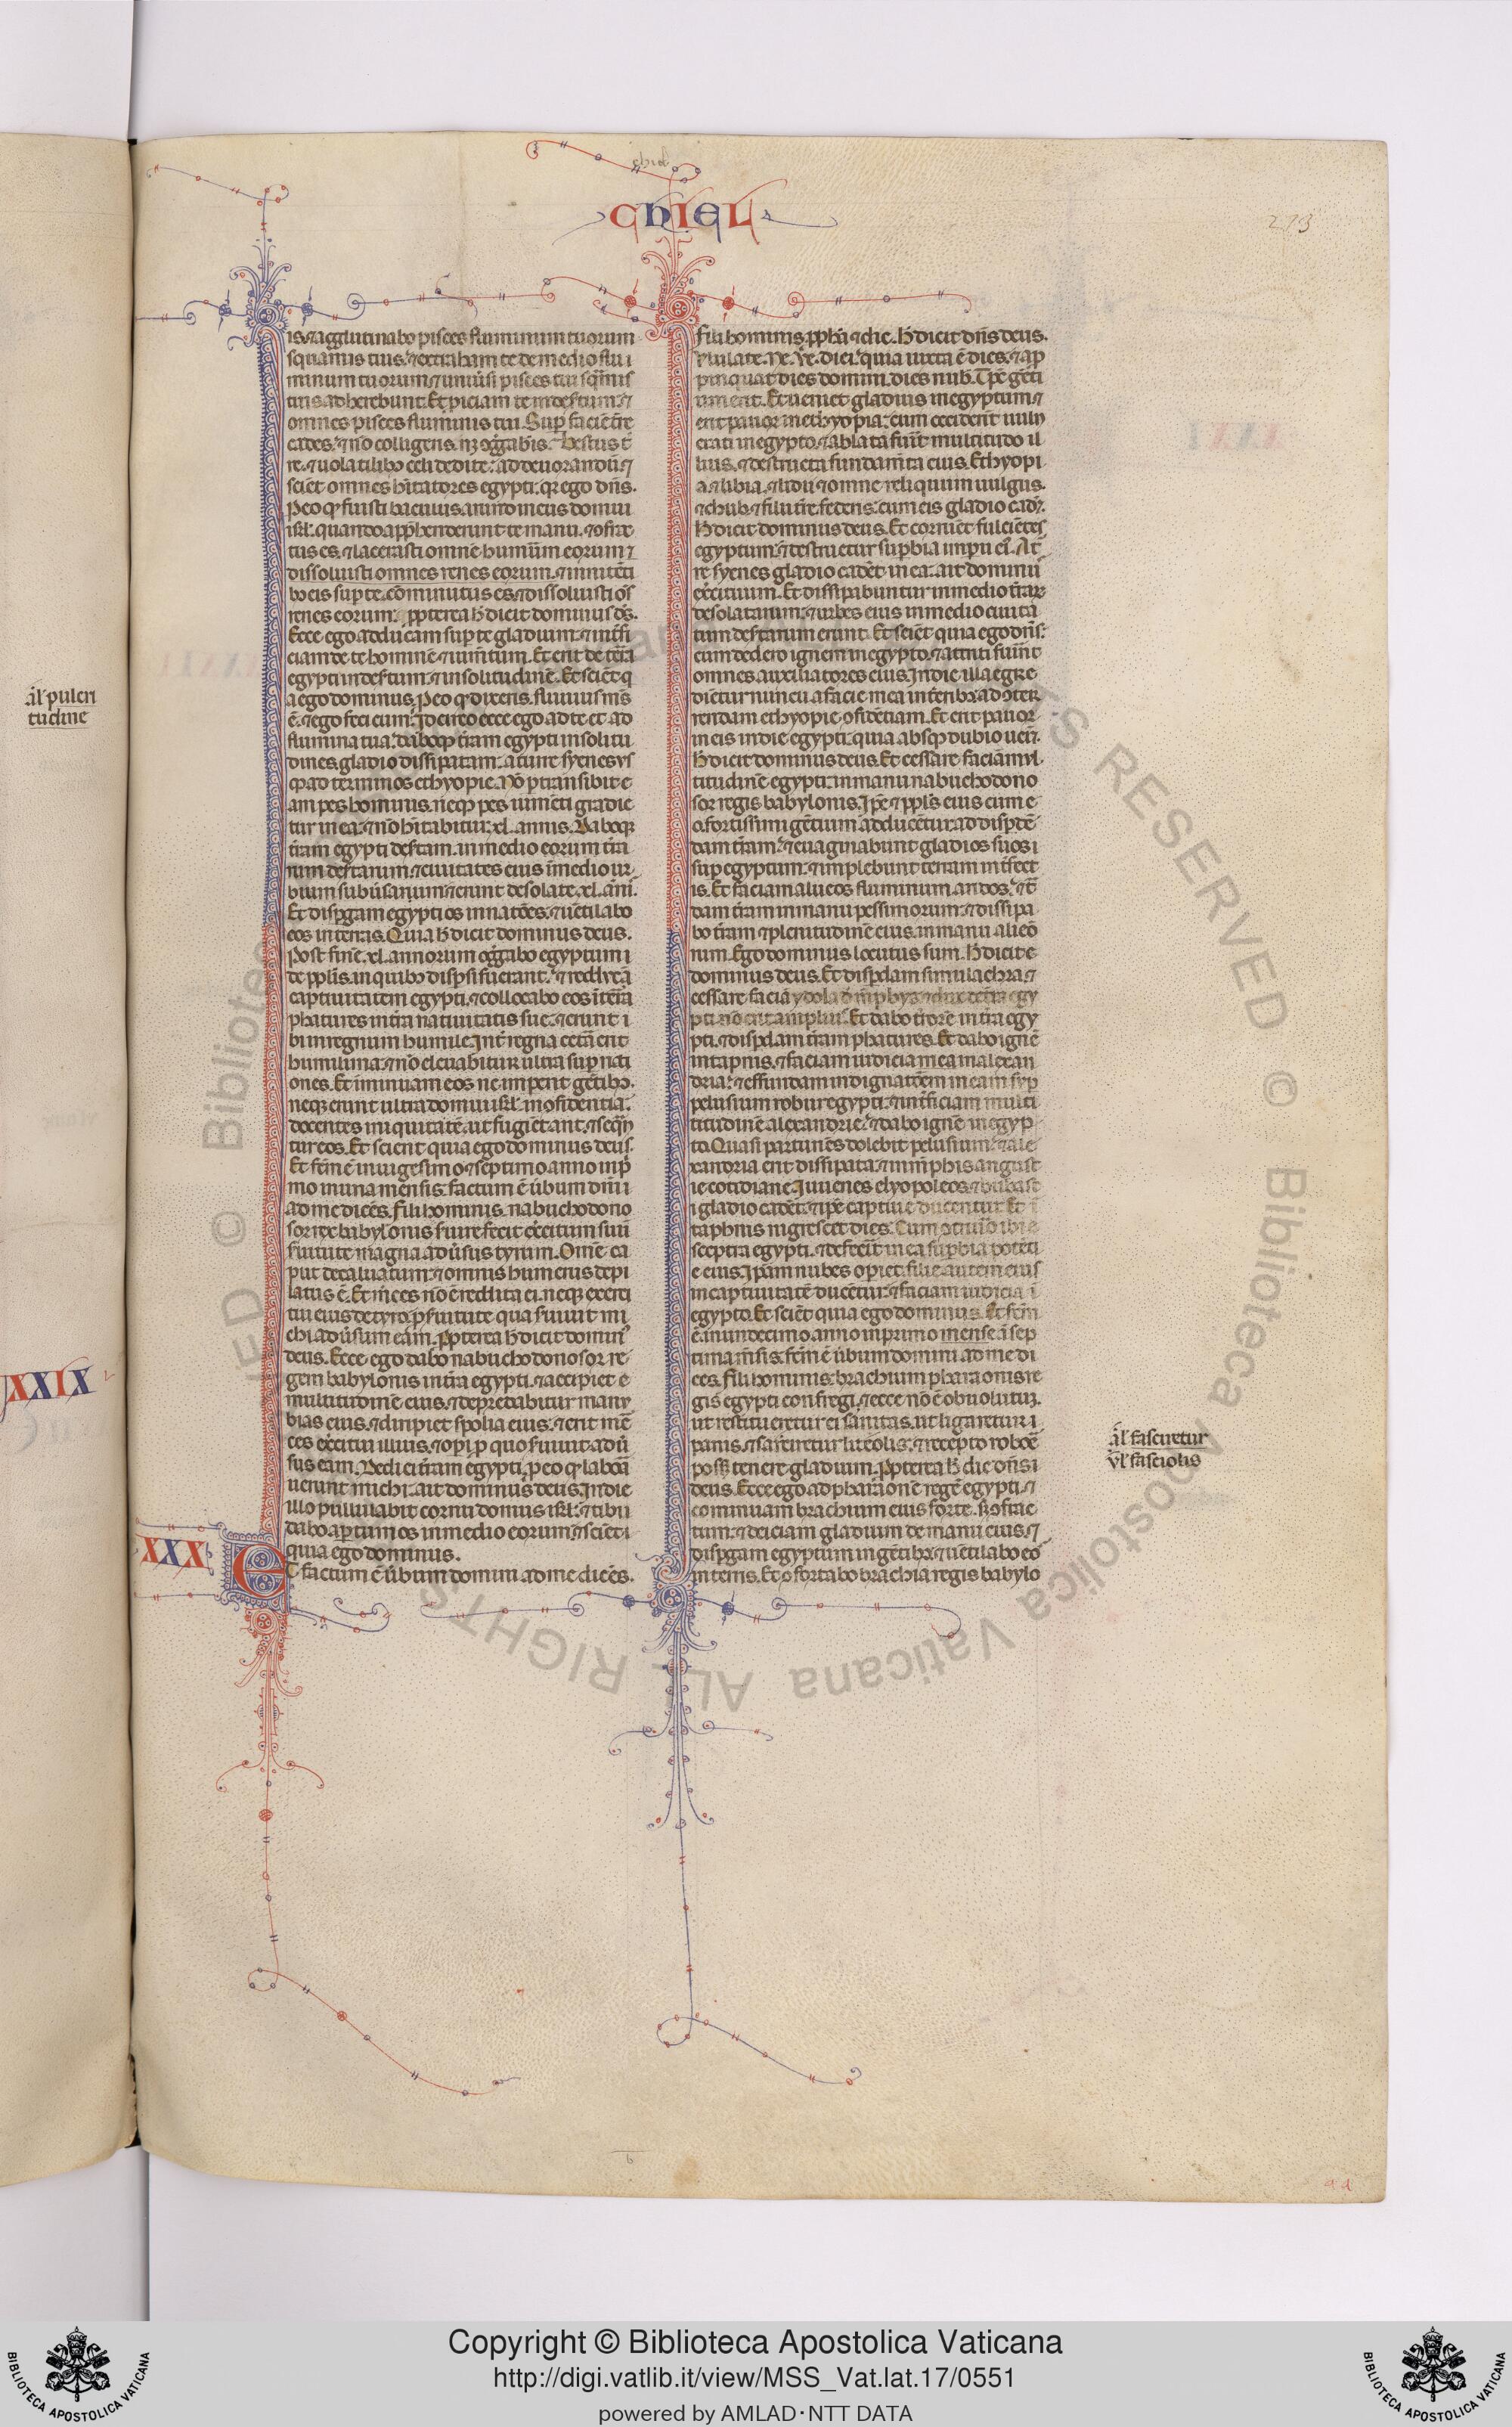 chiel
CHIEL
273
al' pulcri
tudine
XXIX
is. ⁊ agglutinabo pisces fluminum tuorum
squamis tuis. ⁊ extraham te de medio flui
minum tuorum ⁊ uniuersi pisces tui sq̄mis
tuis adherebunt. Et p̱iciam te in des̄tum. ⁊
omnes pisces fluminis tui. Sup̱ faciē tr̄e
cades. ⁊ nō colligeris. neq; ꝯg̱gabis. Bestiis tr̄
re. ⁊ uolatilibꝫ celi dedi te. ad deuorandū. ⁊
sciēt omnes hītatores egypti. qꝛ ego dn̄s.
Peo qđ fuisti baculus arundineus domui
isrl̄. quando app̱henderunt te manu. ⁊ ꝯfrac
tus es. ⁊ lacerasti omnē humeꝝ eorum ⁊
dissoluisti omnes renes eorum. ⁊ innitēti
bꝫ eis sup̱ te. cōminutus es. ⁊ dissoluisti oēs
renes eorum. p̱pterea hͨ dicit dominus d̄s.
Ecce ego adducam sup̱ te gladium. ⁊ int̄fi
ciam de te hominē ⁊ iumentum. Et erit de tr̄a
egypti in des̄tum. ⁊ in solitudinē. Et sciēt q̄
a ego dominus. Peo qđ dixeris. fluuius m̄s
ē. ⁊ ego feci eum. Idcirco ecce ego ad te et ad
flumina tua. daboqꝫ tr̄am egypti in solitu
dines gladio dissipatam. a turre syenes us
qꝫ ad terminos ethyopie. Nō p̱transibit e
am pes hominis. neqꝫ pes iumēti gradie
tur in ea. ⁊ nō hītabitur. xl. annis. Daboqꝫ
tr̄am egypti des̄tam. in medio eorum tr̄a
rum des̄tarum. ⁊ ciuitates eius ī medio ur
bium subūsarum ⁊ erunt desolate. xl. anī.
Et disp̱gam egyptios in natōes. ⁊ uētilabo
eos in terras. Quia hͨ dicit dominus deus.
Post finē. xl. annorum ꝯg̱gabo egyptum
de pp̱lis. in quibꝫ disp̱si fuerant. ⁊ reducā
captiuitatem egypti. ⁊ collocabo eos ī tr̄a
phatures in tr̄a natiuitatis sue. ⁊ erunt i
bi in regnum humile. Int̄ regna cet̄a erit
humilima. ⁊ nō eleuabitur ultra sup̱ nati
ones. Et inminuam eos ne imperent gētibꝫ.
neqꝫ erunt ultra domui isrl̄. in ꝯfidentia.
docentes iniquitatē. ut fugiēt ant. ⁊ seq̄n
tur eos. Et scient quia ego dominus deus.
Et fc̄m ē in uigesimo ⁊ septimo anno in p̱
mo in una mensis. factum ē ūbum dn̄i
ad me dicēs. Fili hominis. nabuchodono
sor rex babylonis suire fecit ex̱citum suū
suitute magna adūsus tyrum. Om̄e ca
put decaluatum. ⁊ omnis humerus depi
latus ē. Et mīces nō ē reddita ei. neqꝫ exerci
tui eius de tyro. p̱ suitute qua suiuit mi
chi adūsum eam. p̱pterea hͨ dicit domin̄
deus. Ecce ego dabo nabuchodonosor re
gem babylonis in tr̄a egypti. ⁊ accipiet
multitudinē eius. ⁊ dep̱redabitur manu
bias eius. ⁊ diripiet spolia eius. ⁊ erit mē
ces ex̱citui illius. ⁊ op̱i p̱ quo suiuit adū
sus eam. Dedi ei tr̄am egypti. p̱ eo qđ labora
uerunt michi. ait dominus deus. In die
illo pullulabit cornu domus isrl̄. ⁊ tibi
dabo ap̱tum os in medio eorum. ⁊ sciēt
quia ego dominus.
XXX
ET factum ē ūbum domini ad me dicēs.
fili hominis. p̱pheta ⁊ dic. hͨ dicit dn̄s deus.
Vlulate. Ve. Ve. diei. quia iuxta ē dies. ⁊ ap̱
pinquat dies domini. dies nub̄. Tp̄s gēti
um erit. Et ueniet gladius in egyptum ⁊
erit pauor in ethyopia. cum ceciderīt uuln
erati in egypto. ⁊ ablata fuīt multitudo il
lius. ⁊ destructa fundamīta eius. Ethyopi
a. ⁊ libia. ⁊ lidii ⁊ omne reliquum uulgus.
⁊ chub. ⁊ filii tr̄e federis. cum eis gladio cadēt.
Hͨ dicit dominus deus. Et corruēt fulciētes
egyptum. ⁊ destruetur sup̱bia imp̱ii ei. A tur
re syenes gladio cadēt in ea. ait dominus
ex̱cituum. Et dissipabuntur in medio tr̄aꝝ
desolatarum. ⁊ urbes eius in medio ciuita
tum des̄tarum erunt. Et sciēt quia ego dn̄s.
cum dedero ignem in egypto. ⁊ attriti fuīnt
omnes auxiliatores eius. In die illa egre
diētur nuncii a facie mea in trierbꝫ ad ꝯter
rendam ethyopie ꝯfidētiam. Et erit pauor
in eis in die egypti. quia absqꝫ dubio ueīt.
Hͨ dicit dominus deus. Et cessare faciā mul
titudinē egypti. in manu nabuchodono
sor regis babylonis. Ip̄e ⁊ pp̱ls eius cum e
o. fortissimi gētium adducētur ad disp̱dē
dam tr̄am. ⁊ euaginabunt gladios suos
sup̱ egyptum. ⁊ implebunt terram int̄fect
is. Et faciam alueos fluminum aridos. ⁊ t̄
dam tr̄am in manu pessimorum. ⁊ dissipa
bo tr̄am ⁊ plenitudinē eius. in manu alieno
rum. Ego dominus locutus sum. Hͨ dicit
dominus deus. Et disp̱dam simulachra. ⁊
cessare faciā ydola d mēphys. ⁊ dux de tr̄a egy
pti nō erit amplius. Et dabo t̄rorē in tr̄a egy
pti. ⁊ disp̱dam tr̄am phatures. Et dabo ignē
in tapnis. ⁊ faciam iudicia mea in alexan
dria. ⁊ effundam indignatōem meam sup̱
pelusium robur egypti. ⁊ int̄ficiam multi
titudinē alexandrie. ⁊ dabo ignē in egyp
to. Quasi parturiēs dolebit pelusium. ⁊ ale
xandria erit dissipata. ⁊ in mēphis angust
ie cotidiane. Iuuenes elyopoleos ⁊ bubast
i gladio cadēt. ⁊ ip̄e captiue ducentur. Et ī
taphnis nigrescet dies. Cum ꝯtriuō ibi
sceptra egypti. ⁊ defecīt in ea sup̱bia potēti
e eius. Ip̄am nubes op̱iet. filie autem eius
in captiuitatē ducētur. ⁊ faciam iudicia ī
egypto. Et sciēt quia ego dominus. Et fc̄m
ē. in undecimo anno in primo mense. ī sep
tima mēsis. fc̄m ē ūbum domini ad me di
cēs. Fili hominis. brachium pharaonis re
gis egypti confregi. ⁊ ecce nō ē obuolutuꝫ.
ut restitueretur ei sanitas. ut ligaretur
pānis. ⁊ farciretur liteolis. ⁊ recepto robore
posset tenere gladium. p̱pterea hͨ dic̄ dn̄s
deus. Ecce ego ad pharaonē regē egypti. ⁊
cōminuam brachium eius forte. sꝫ ꝯfrac
tum. ⁊ deiciam gladium de manu eius. ⁊
disp̱gam egyptum in gētibꝫ. ⁊ uētilabo eos
in terris. Et ꝯfortabo brachia regis babylo
al' fasciretur
ul' fasciolis
Copyright © Biblioteca Apostolica Vaticana
http://digi.vatlib.it/view/MSS_Vat.lat.17/0551
powered by AMLAD·NTT DATA
BIBLIOTECA APOSTOLICA VATICANA
BIBLIOTECA APOSTOLICA VATICANA